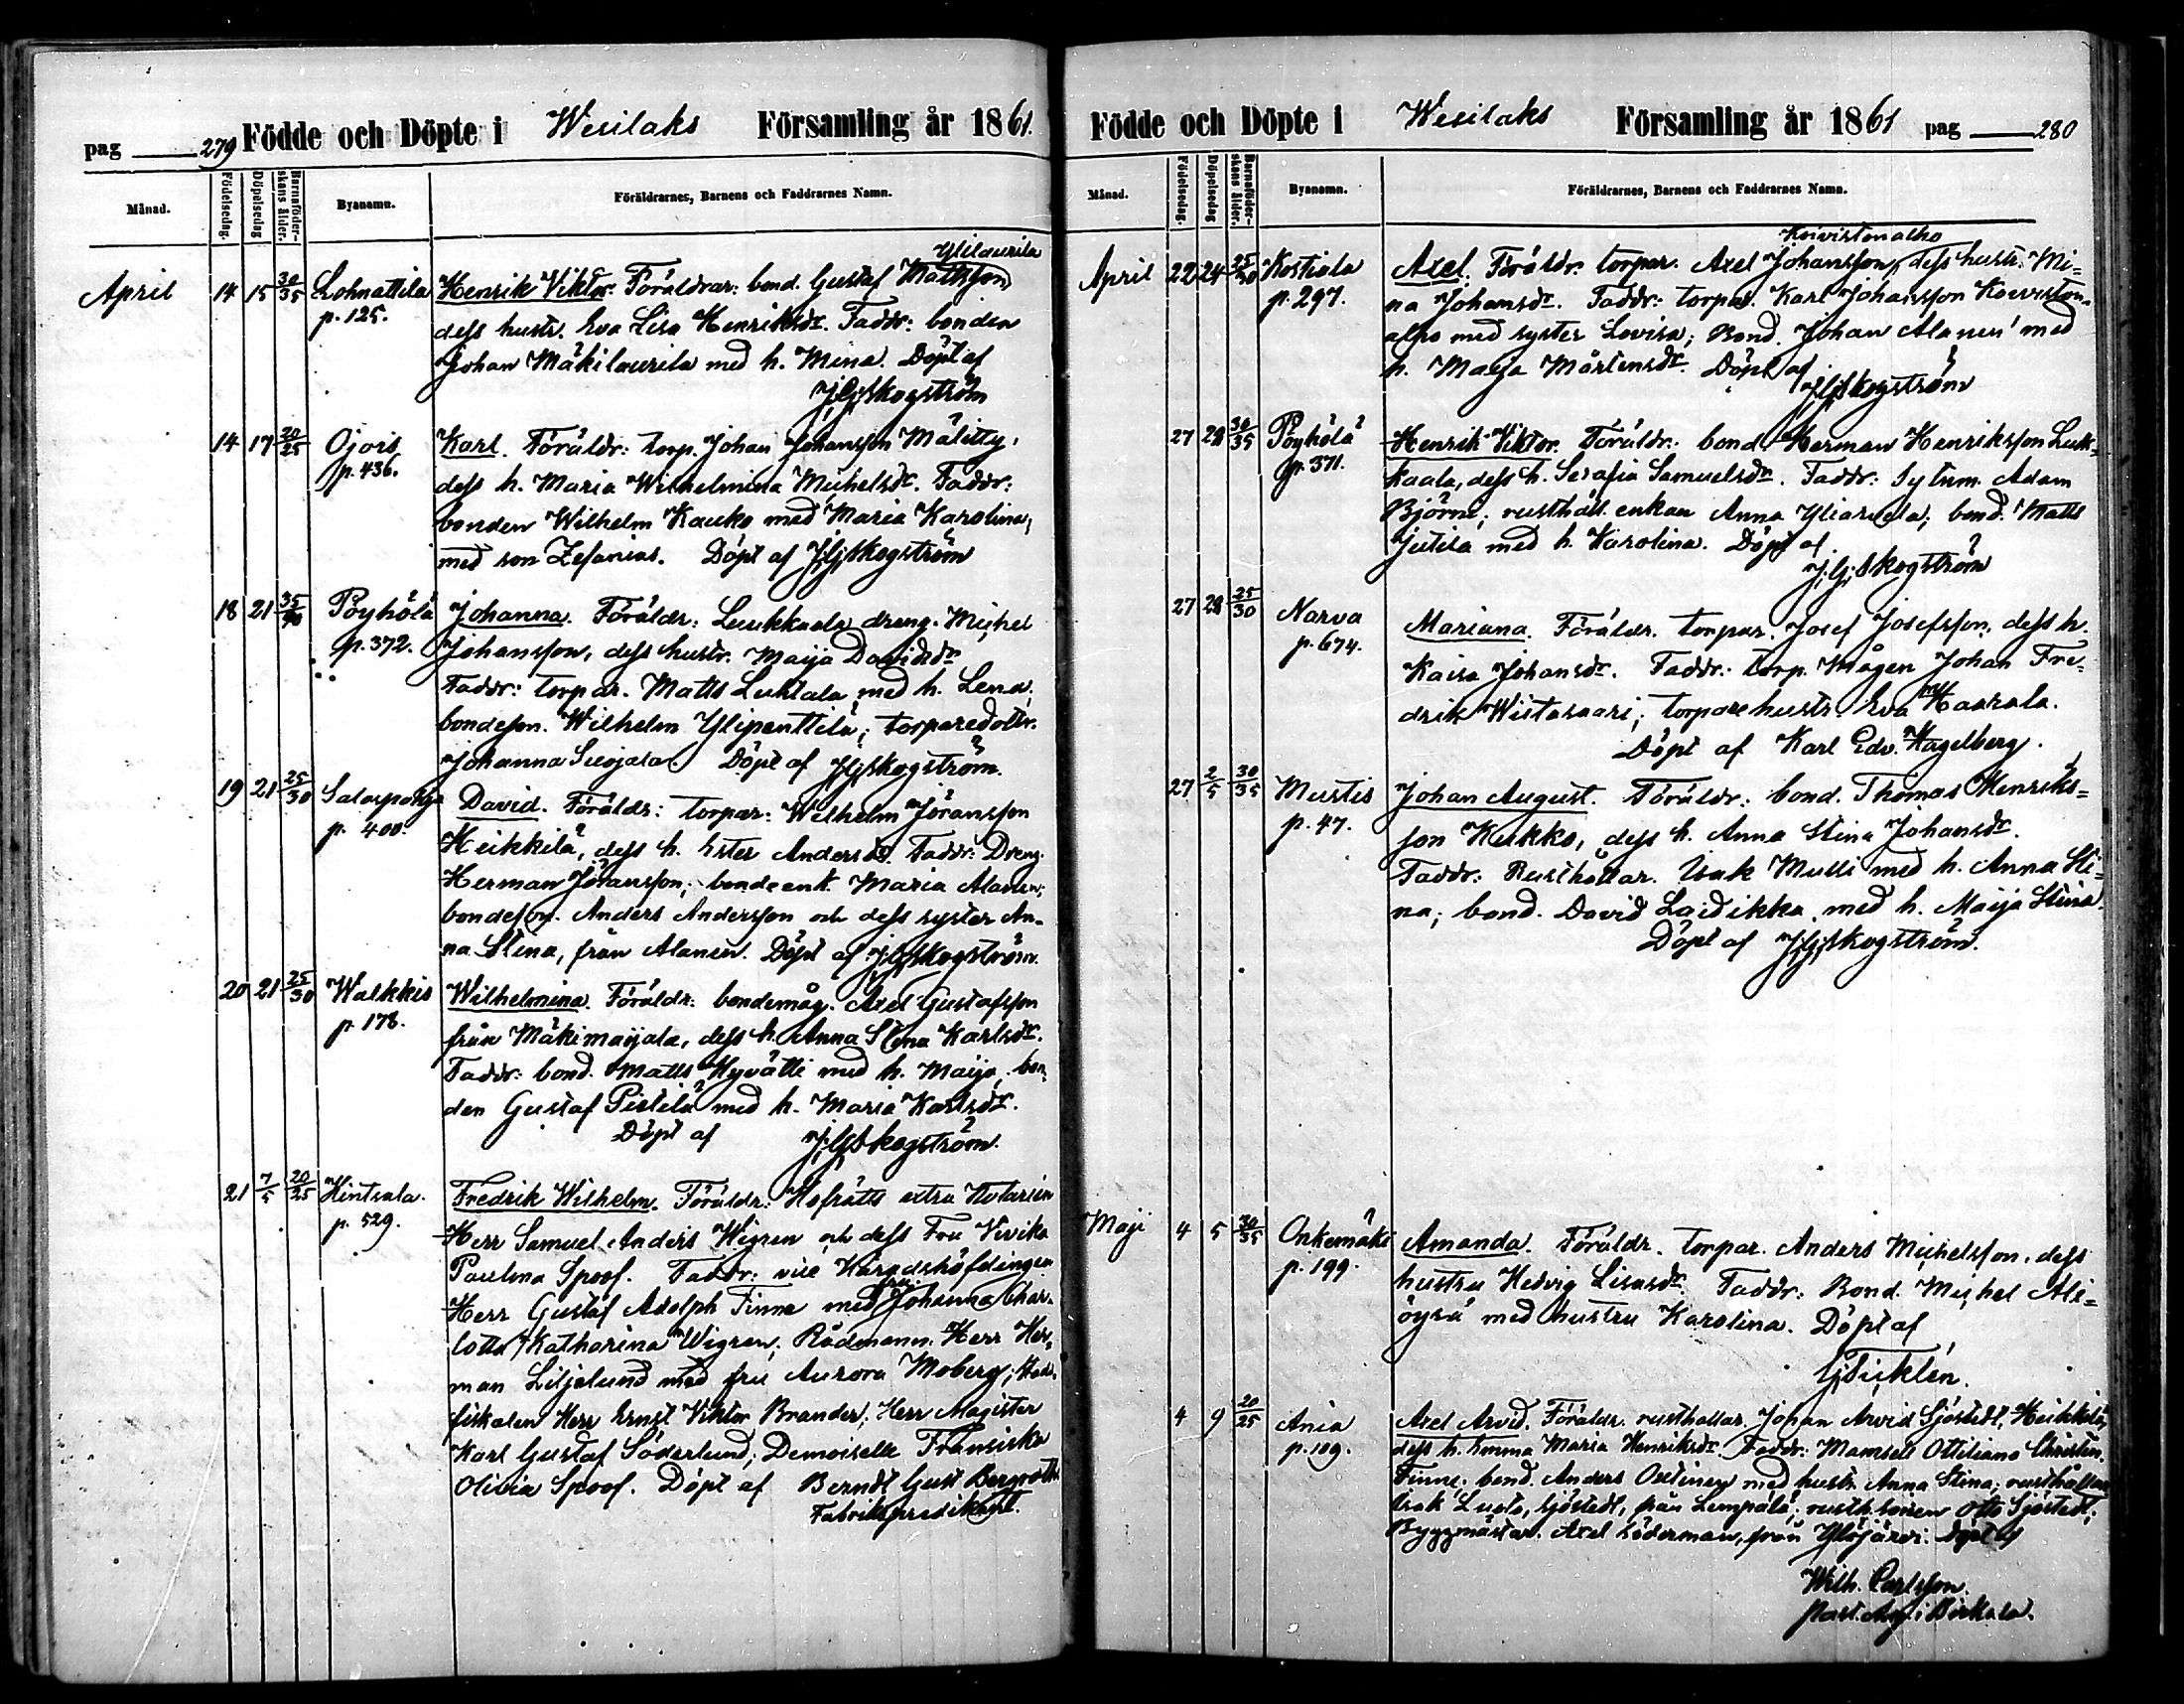 pag 279 Födde och Döpte i Wesilaks Församling år 1861.
Månad. Födelsedag. Döpelsedag Barnaföderskans ålder. Byanamn. Föräldrarnes, Barnens och Faddrarnes Namn.
Ylilaurila
April 14 15 30/35 Lohnattila Henrik Viktor. Föräldrar: bond. Gustaf Mathsson
p. 125. dess hustr. Eva Lisa Henriksdr. Faddr: bonden
Johan Mäkilaurila med h. Mina. Döpt af
J.G. Skogström
14 17 20/25 Ojois Karl. Föräldr: torp. Johan Johansson Mälitty,
p. 436. dess h. Maria Wilhelmina Michelsdr. Faddr:
bonden Wilhelm Kauko med Maria Karolina,
med son Zefanias. Döpt af J.G. Skogström
18 21 35/40 Pöyhölä Johanna. Föräldr: Luukkaala dreng. Michel
p. 372. Johansson, dess hustr. Maija Davidsdr
Faddr: torpar. Matts Luhtala med h. Lena,
bondeson. Wilhelm Ylipenttilä; torparedottr.
Johanna Suojala. Döpt af J.G. Skogström.
19 21 25/30 Salospohja David. Föräldr: torpar: Wilhelm Jöransson
p. 400. Heikkilä, dess h. Ester Andersdr. Faddr: Dreng.
Herman Jöransson; bondeenk. Maria Alanen;
bondeson. Anders Andersson och dess syster An-
na Stina, från Alanen. Döpt af J.G. Skogström.
20 21 25/30 Walkkis Wilhelmina. Föräldr: bondemåg. Axel Gustafsson
p. 178. från Mäkimaijala, dess h. Anna Stina Karlsdr.
Faddr: bond. Matts Hyvätti med h. Maija, bon-
den Gustaf Pietilä med h. Maria Karlsdr.
Döpt af J.G. Skogström.
21 7/5 20/25 Hintsala. Fredrik Wilhelm. Föräldr: Hofrätts extra Notarien
p. 529. Herr Samuel Anders Wigren och dess Fru Vivika
Paulina Spoof. Faddr: vice Häradshöfdingen
Herr Gustaf Adolph Finne med fru Johanna Char-
lotta Katharina Wigren; Rådmann. Herr Her-
man Liljelund med fru Aurora Moberg; Stads-
fiskalen Herr Ernst Viktor Brander; Herr Magister
Karl Gustaf Söderlund; Demoiselle Fransiska
Olivia Spoof. Döpt af Berndt Gust Bergroth
Fabrikspredikant.
Födde och Döpte i Wesilaks Församling år 1861 pag 280
Månad. Födelsedag. Döpelsedag Barnaföderskans ålder. Byanamn. Föräldrarnes, Barnens och Faddrarnes Namn.
Koivistonalho
April 22 24 25/30 Kostiala Axel. Föräldr. torpar. Axel Johansson, dess hustr. Mi=
p. 297. na Johansdr. Faddr: torpar. Karl Johansson Koiviston-
alho med syster Lovisa; Bond. Johan Alanen med
h. Maja Mårtensdr. Döpt af
J.G. Skogström
27 28 30/35 Pöyhölä Henrik Viktor. Föräldr: bond. Herman Henriksson Luk-
p. 371. kaala, dess h. Serafia Samuelsdr. Faddr: Sytnm. Adam
Björni; rusthåll. enkan Anna Yliarvela; bond. Matts
Jutila med h. Karolina. Döpt af
J.G. Skogström
27 28 25/30 Narva Mariana. Föräldr. torpar. Josef Josefsson, dess h.
p. 674. Kaisa Johansdr. Faddr: torp. Mågen Johan Fre-
drik Wiitasaari; torparehustr. Eva Haarala.
Döpt af Karl Edv. Hagelberg.
27 2/5 30/35 Mustis Johan August. Föräldr: bond. Thomas Henriks=
p. 47. son Kukko, dess h. Anna Stina Johansdr.
Faddr: Rusthållar. Isak Mulli med h. Anna Sti=
na; bond. David Laidikka med h. Maija Stina.
Döpt af J.G. Skogström.
Maji 4 5 30/35 Onkemäki Amanda. Föräldr. torpar. Anders Michelsson, dess
p. 199. hustru Hedvig Lisasdr. Faddr: Bond. Michel Ali=
öyrä med hustru Karolina. Döpt af
G. Ticklén.
4 9 20/25 Ania Axel Arvid. Föräldr. rusthållar. Johan Arvid Sjöstedt, Heikkilä,
p. 109. dess h. Emma Maria Henriksdr. Faddr: Mamsell Ottiliana Christin.
Finne; bond. Anders Oxtinen med hustr. Anna Stina; rusthållar.
Isak Lusto, Sjöstedt, från Lempälä; rusth. sonen Otto Sjöstedt;
Byggmästar. Axel Söderman, från Ylöjärvi. Döpt af
Wilh. Carlsson.
Past. Adj. i Birkala.